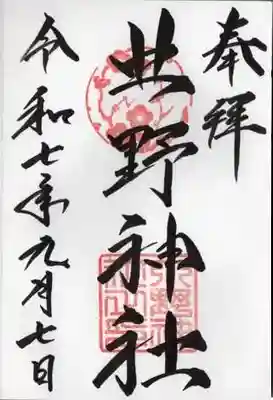 奉拝
北野神社
令和七年九月七日